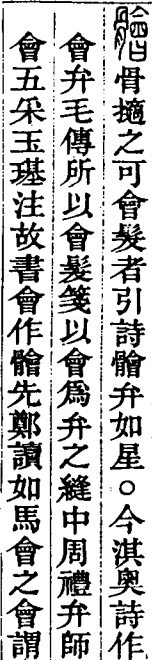 䯤骨擿之可會髮者引詩䯤弁如星○今淇奧詩作
會弁毛傳所以會髮箋以會爲弁之縫中周禮弁師
會五采玉璂注故書會作䯤先鄭讀如馬會之會謂